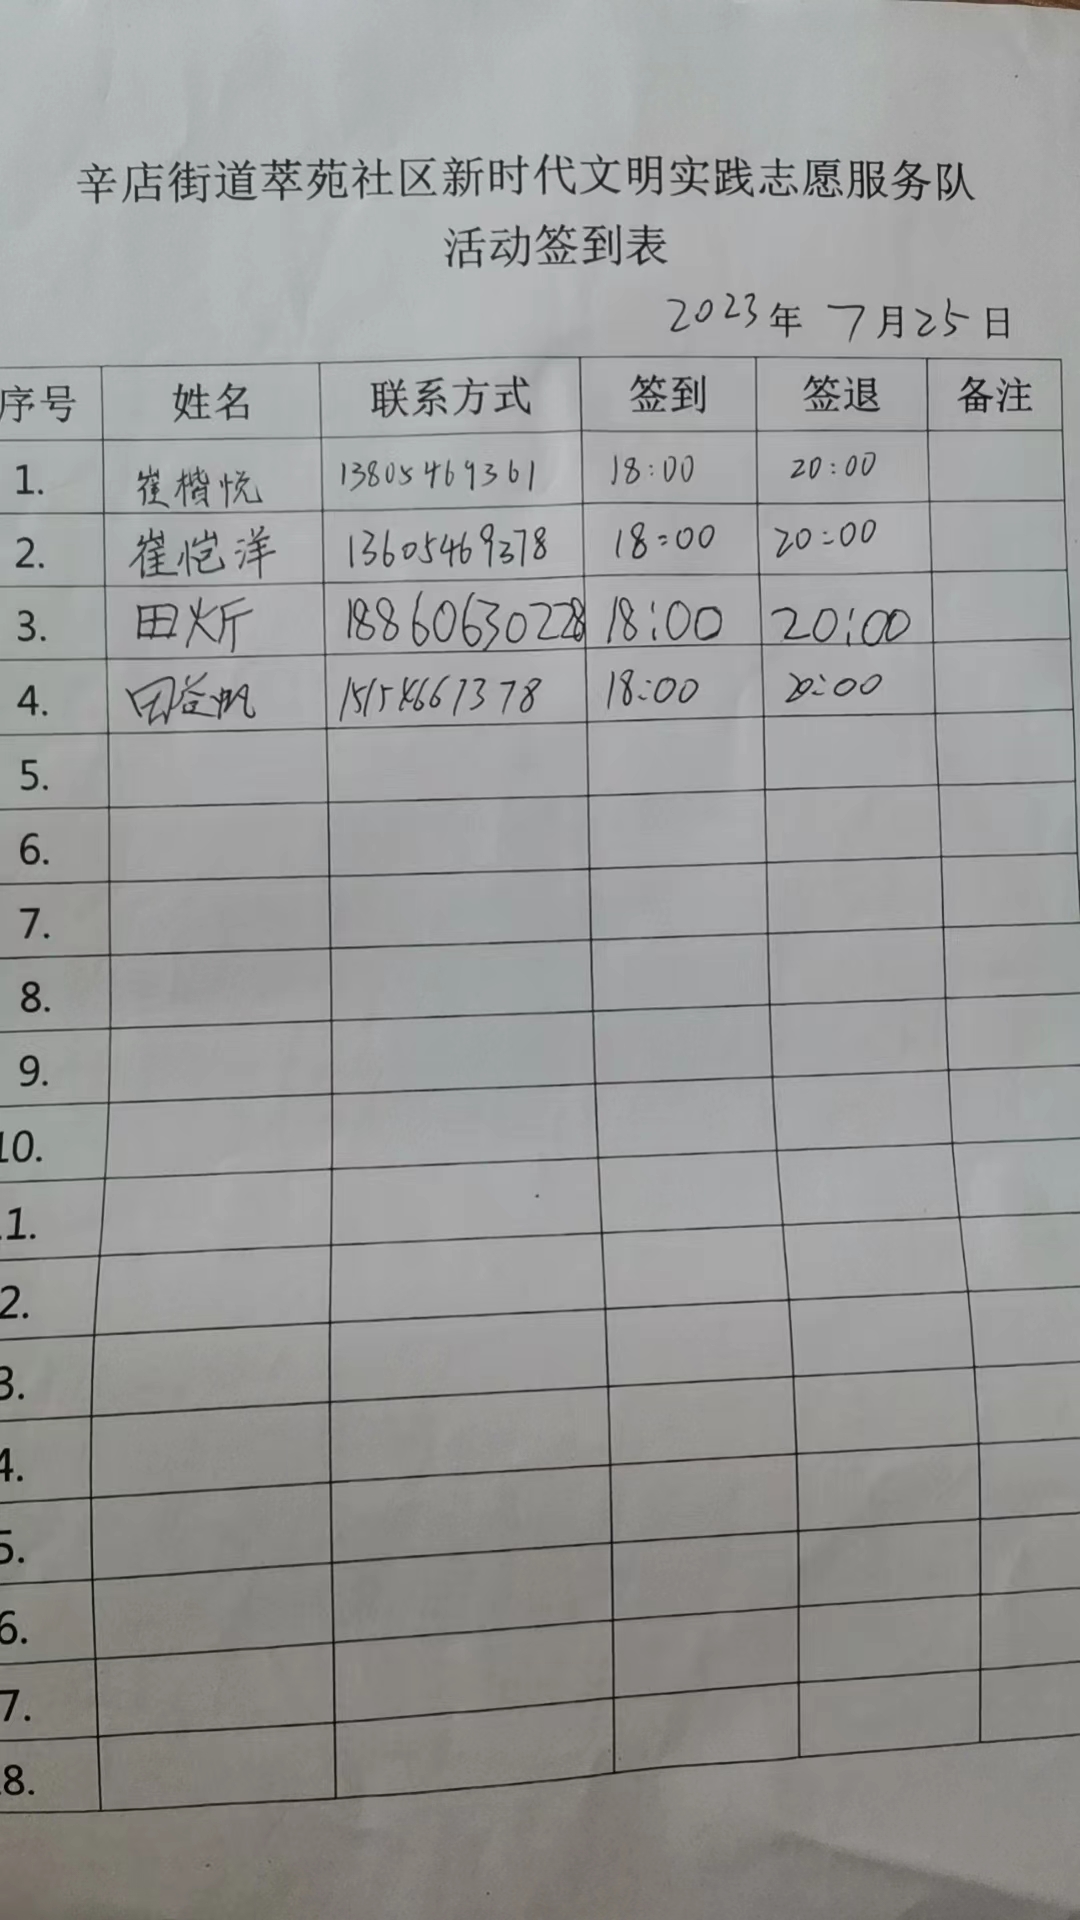 辛店街道萃苑社区新时代文明实践志愿服务队
活动签到表
2023年 7月25日
序号 姓名 联系方式 签到 签退 备注
1. 崔楷悦 13805469361 18:00 20:00
2. 崔恺洋 13605469378 18:00 20:00
3. 田炘 18860630228 18:00 20:00
4. 田益帆 15154661378 18:00 20:00
5.
6.
7.
8.
9.
10.
1.
2.
3.
4.
5.
6.
7.
8.